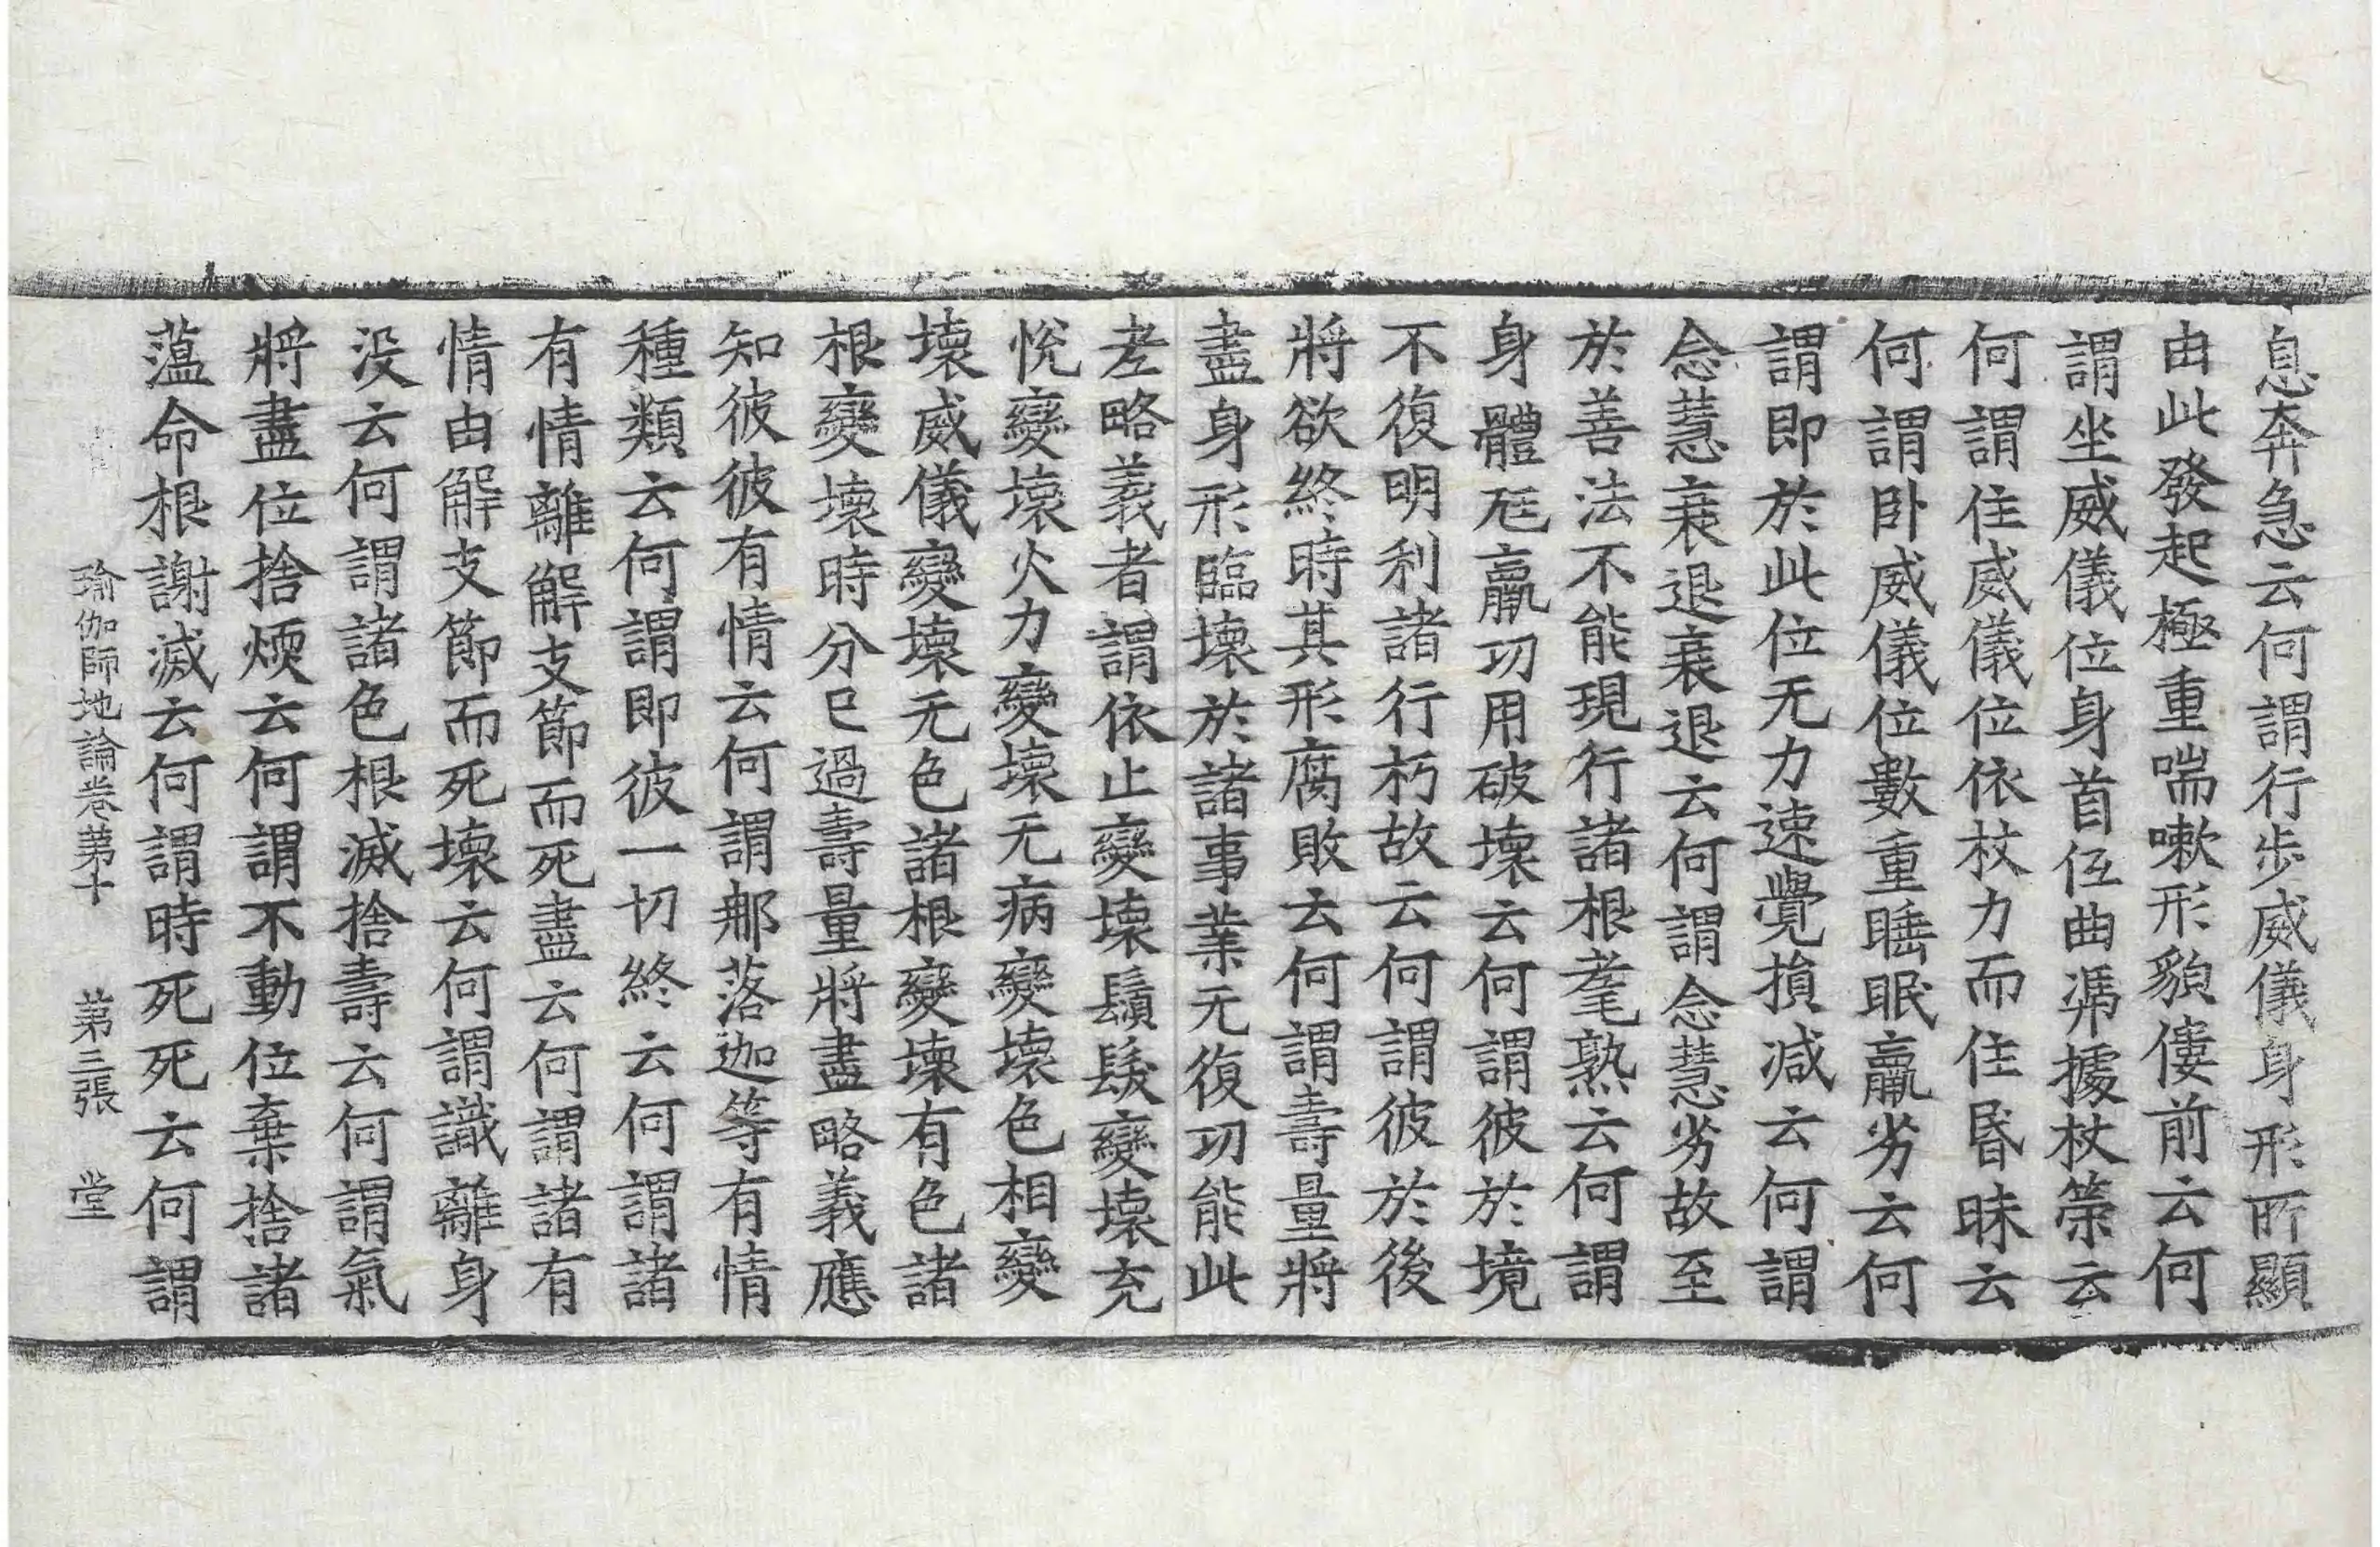 息奔急云何謂行步威儀身形所顯
由此發起極重喘嗽形貌僂前云何
謂坐威儀位身首伍曲馮據杖策云
何謂住威儀位依杖力而住昬昧云
何謂卧威儀位數重睡眠羸劣云何
謂即於此位无力速覺損减云何謂
念慧衰退衰退云何謂念慧劣故至
於善法不能現行諸根耄熟云何謂
身體尫羸功用破壞云何謂彼於境
不復明利諸行朽故云何謂彼於後
將欲終時其形腐敗云何謂壽量將
盡身形臨壞於諸事業无復功能此
老略義者謂依止變壞鬚髮變壞充
悅變壞火力變壞无病變壞色相變
壞威儀變壞无色諸根變壞有色諸
根變壞時分已過壽量將盡略義應
知彼彼有情云何謂那落迦等有情
種類云何謂即彼一切終云何謂諸
有情離解支節而死盡云何謂諸有
情由解支節而死壞云何謂識離身
没云何謂諸色根滅捨壽云何謂氣
將盡位捨煗云何謂不動位棄捨諸
薀命根謝滅云何謂時死死云何謂
瑜伽師地論卷苐十 苐三張 堂